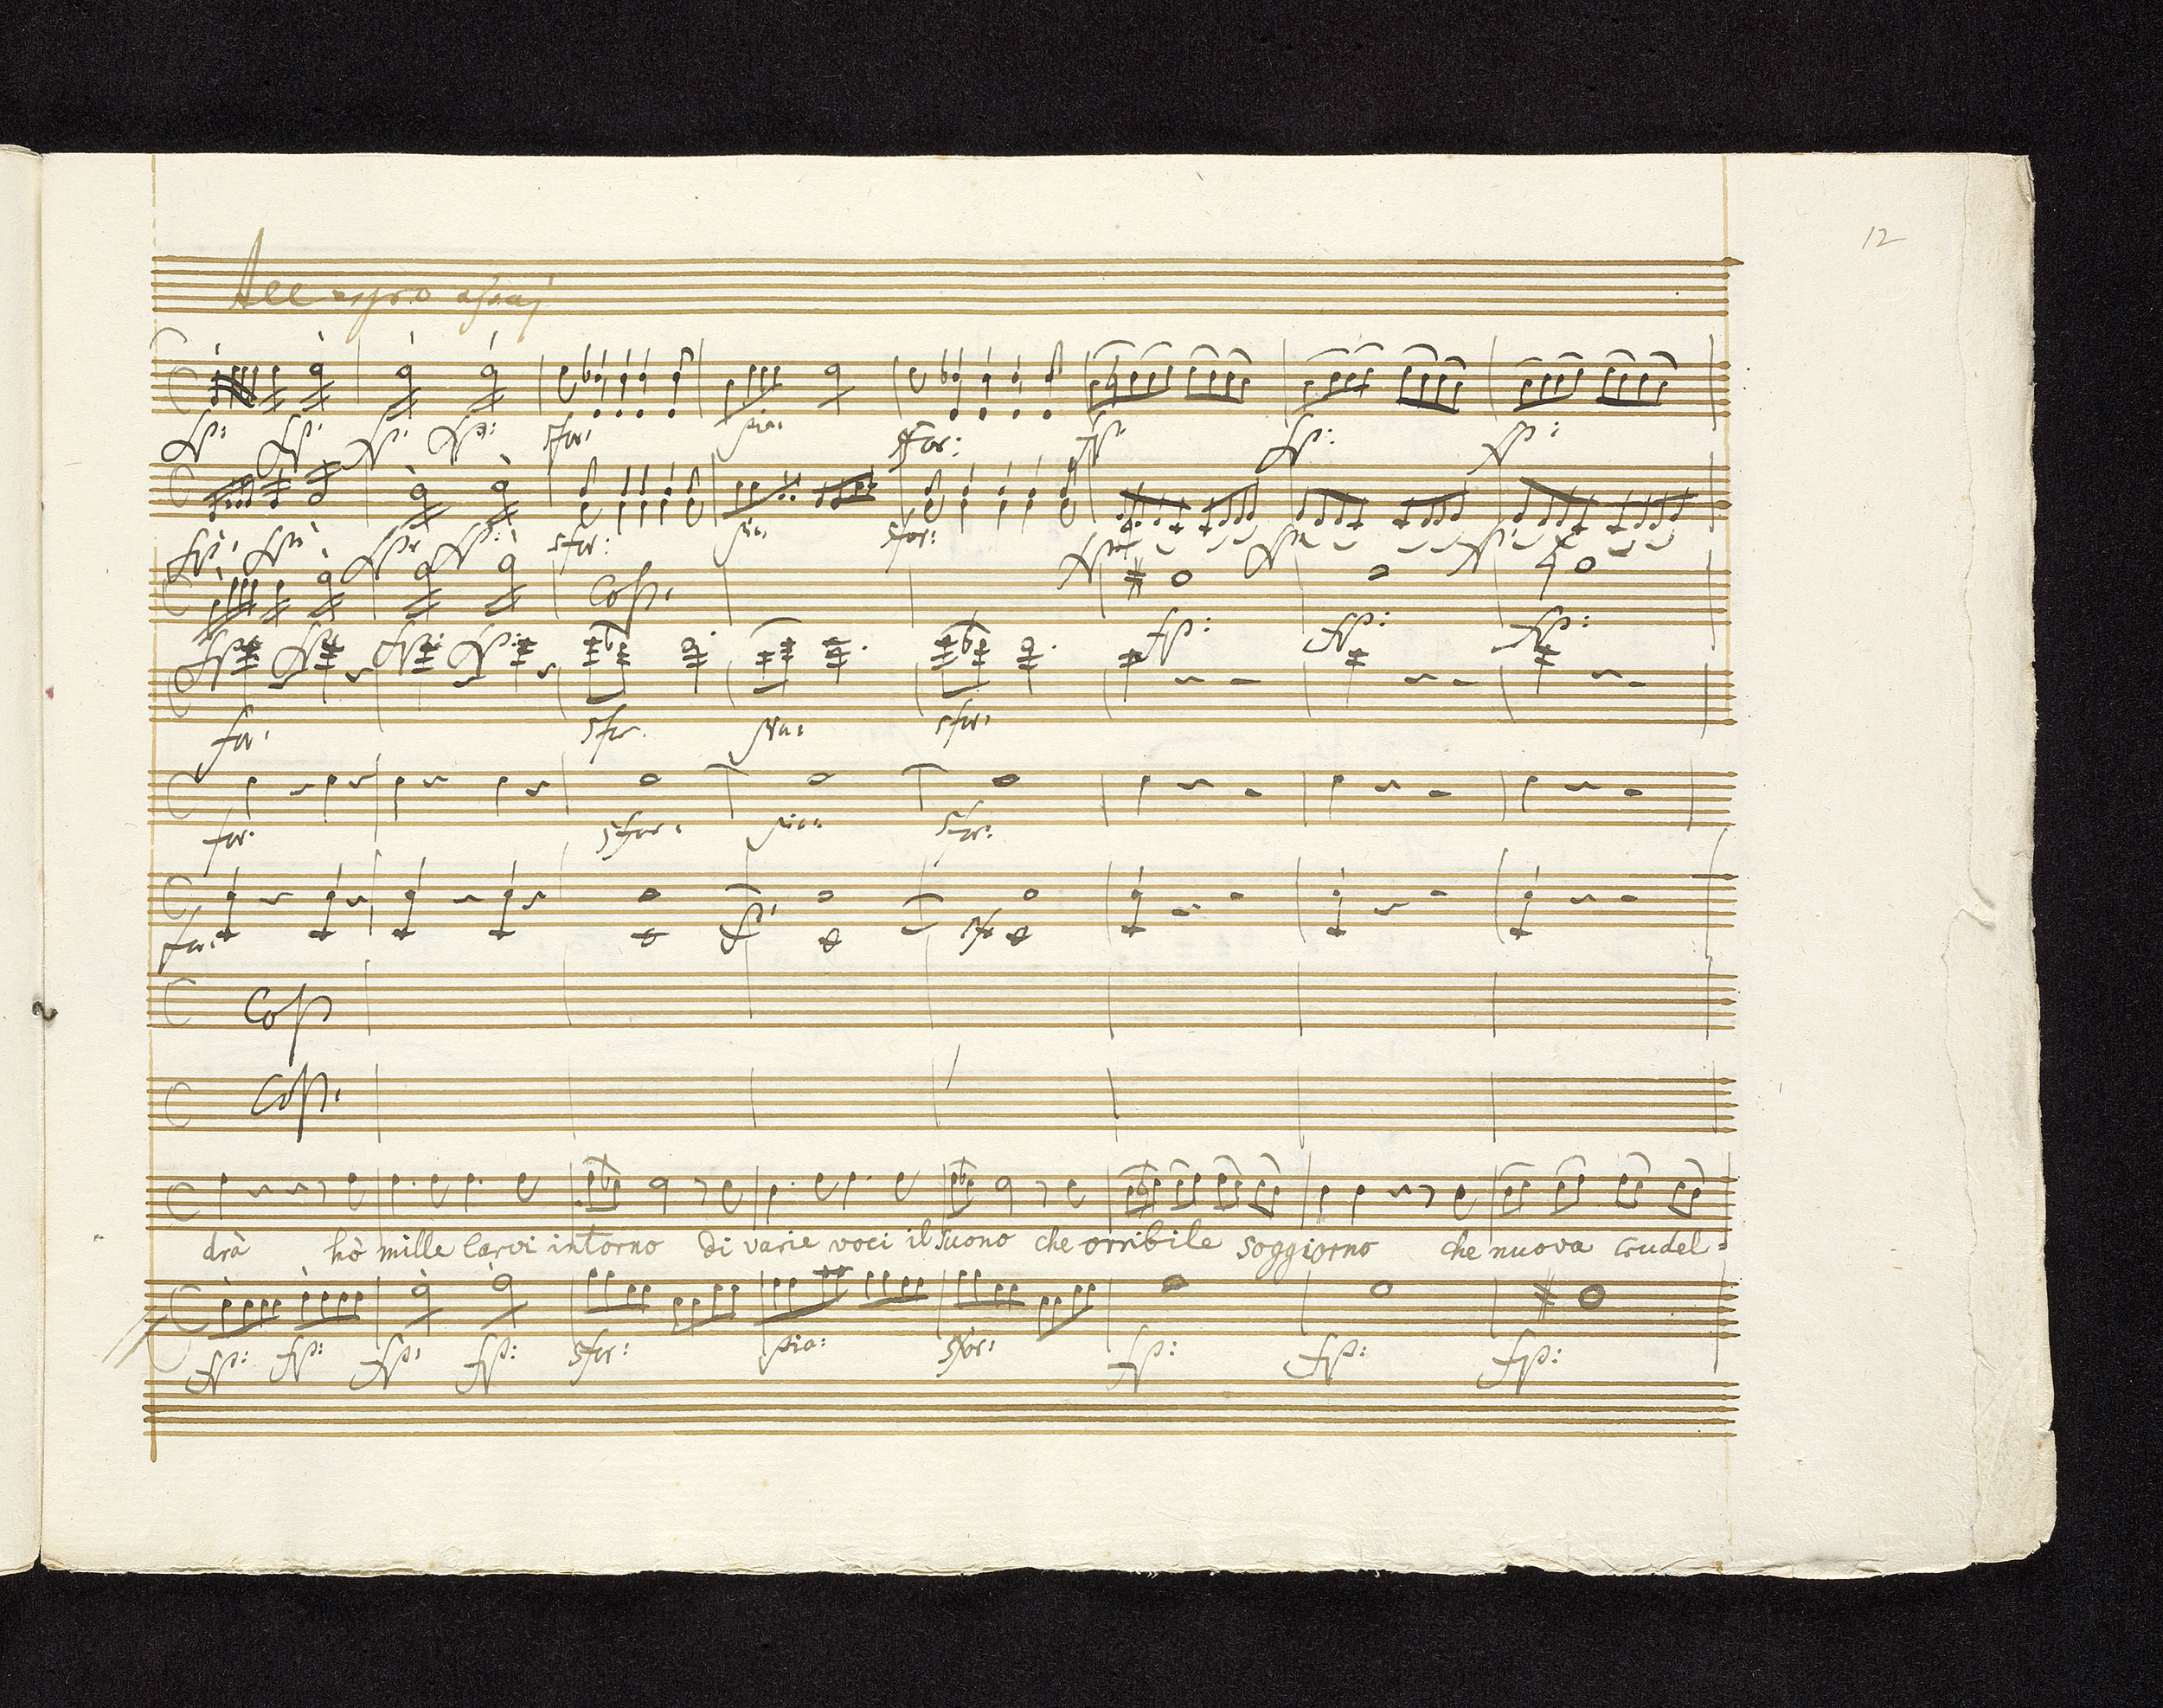 12
Allegro assaj
fp: fp: fp: fp: sfor: pia: sfor: fp: fp: fp:
fp: fp: fp: fp: sfor: pia: sfor: fp: fp: fp:
Cosp:
fp: fp: fp: fp: fp: fp: fp:
for: sfor: pia: sfor:
for: sfor: pia: sfor:
for: sfor
drà hò mille larvi intorno di varie voci il suono che orribile soggiorno che nuova crudel=
fp: fp: fp: fp: sfor: pia: sfor: fp: fp: fp: